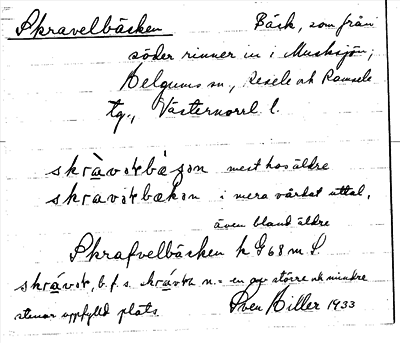 Skravelbäcken Bäck, som från
söder rinner in i Musksjön,
Helgums sn, Resele och Ramsele
tg., Västernorrl l.
skràvɑłbázɑn mest hos äldre
skravɑłbækɑn i mera vårdat uttal,
även bland äldre
Skrafvelbäcken k G 68 m S
skrávɑł, b.f. s. skrávłɑ n. = en av större och mindre
stenar uppfylld plats. Sven Hiller 1933